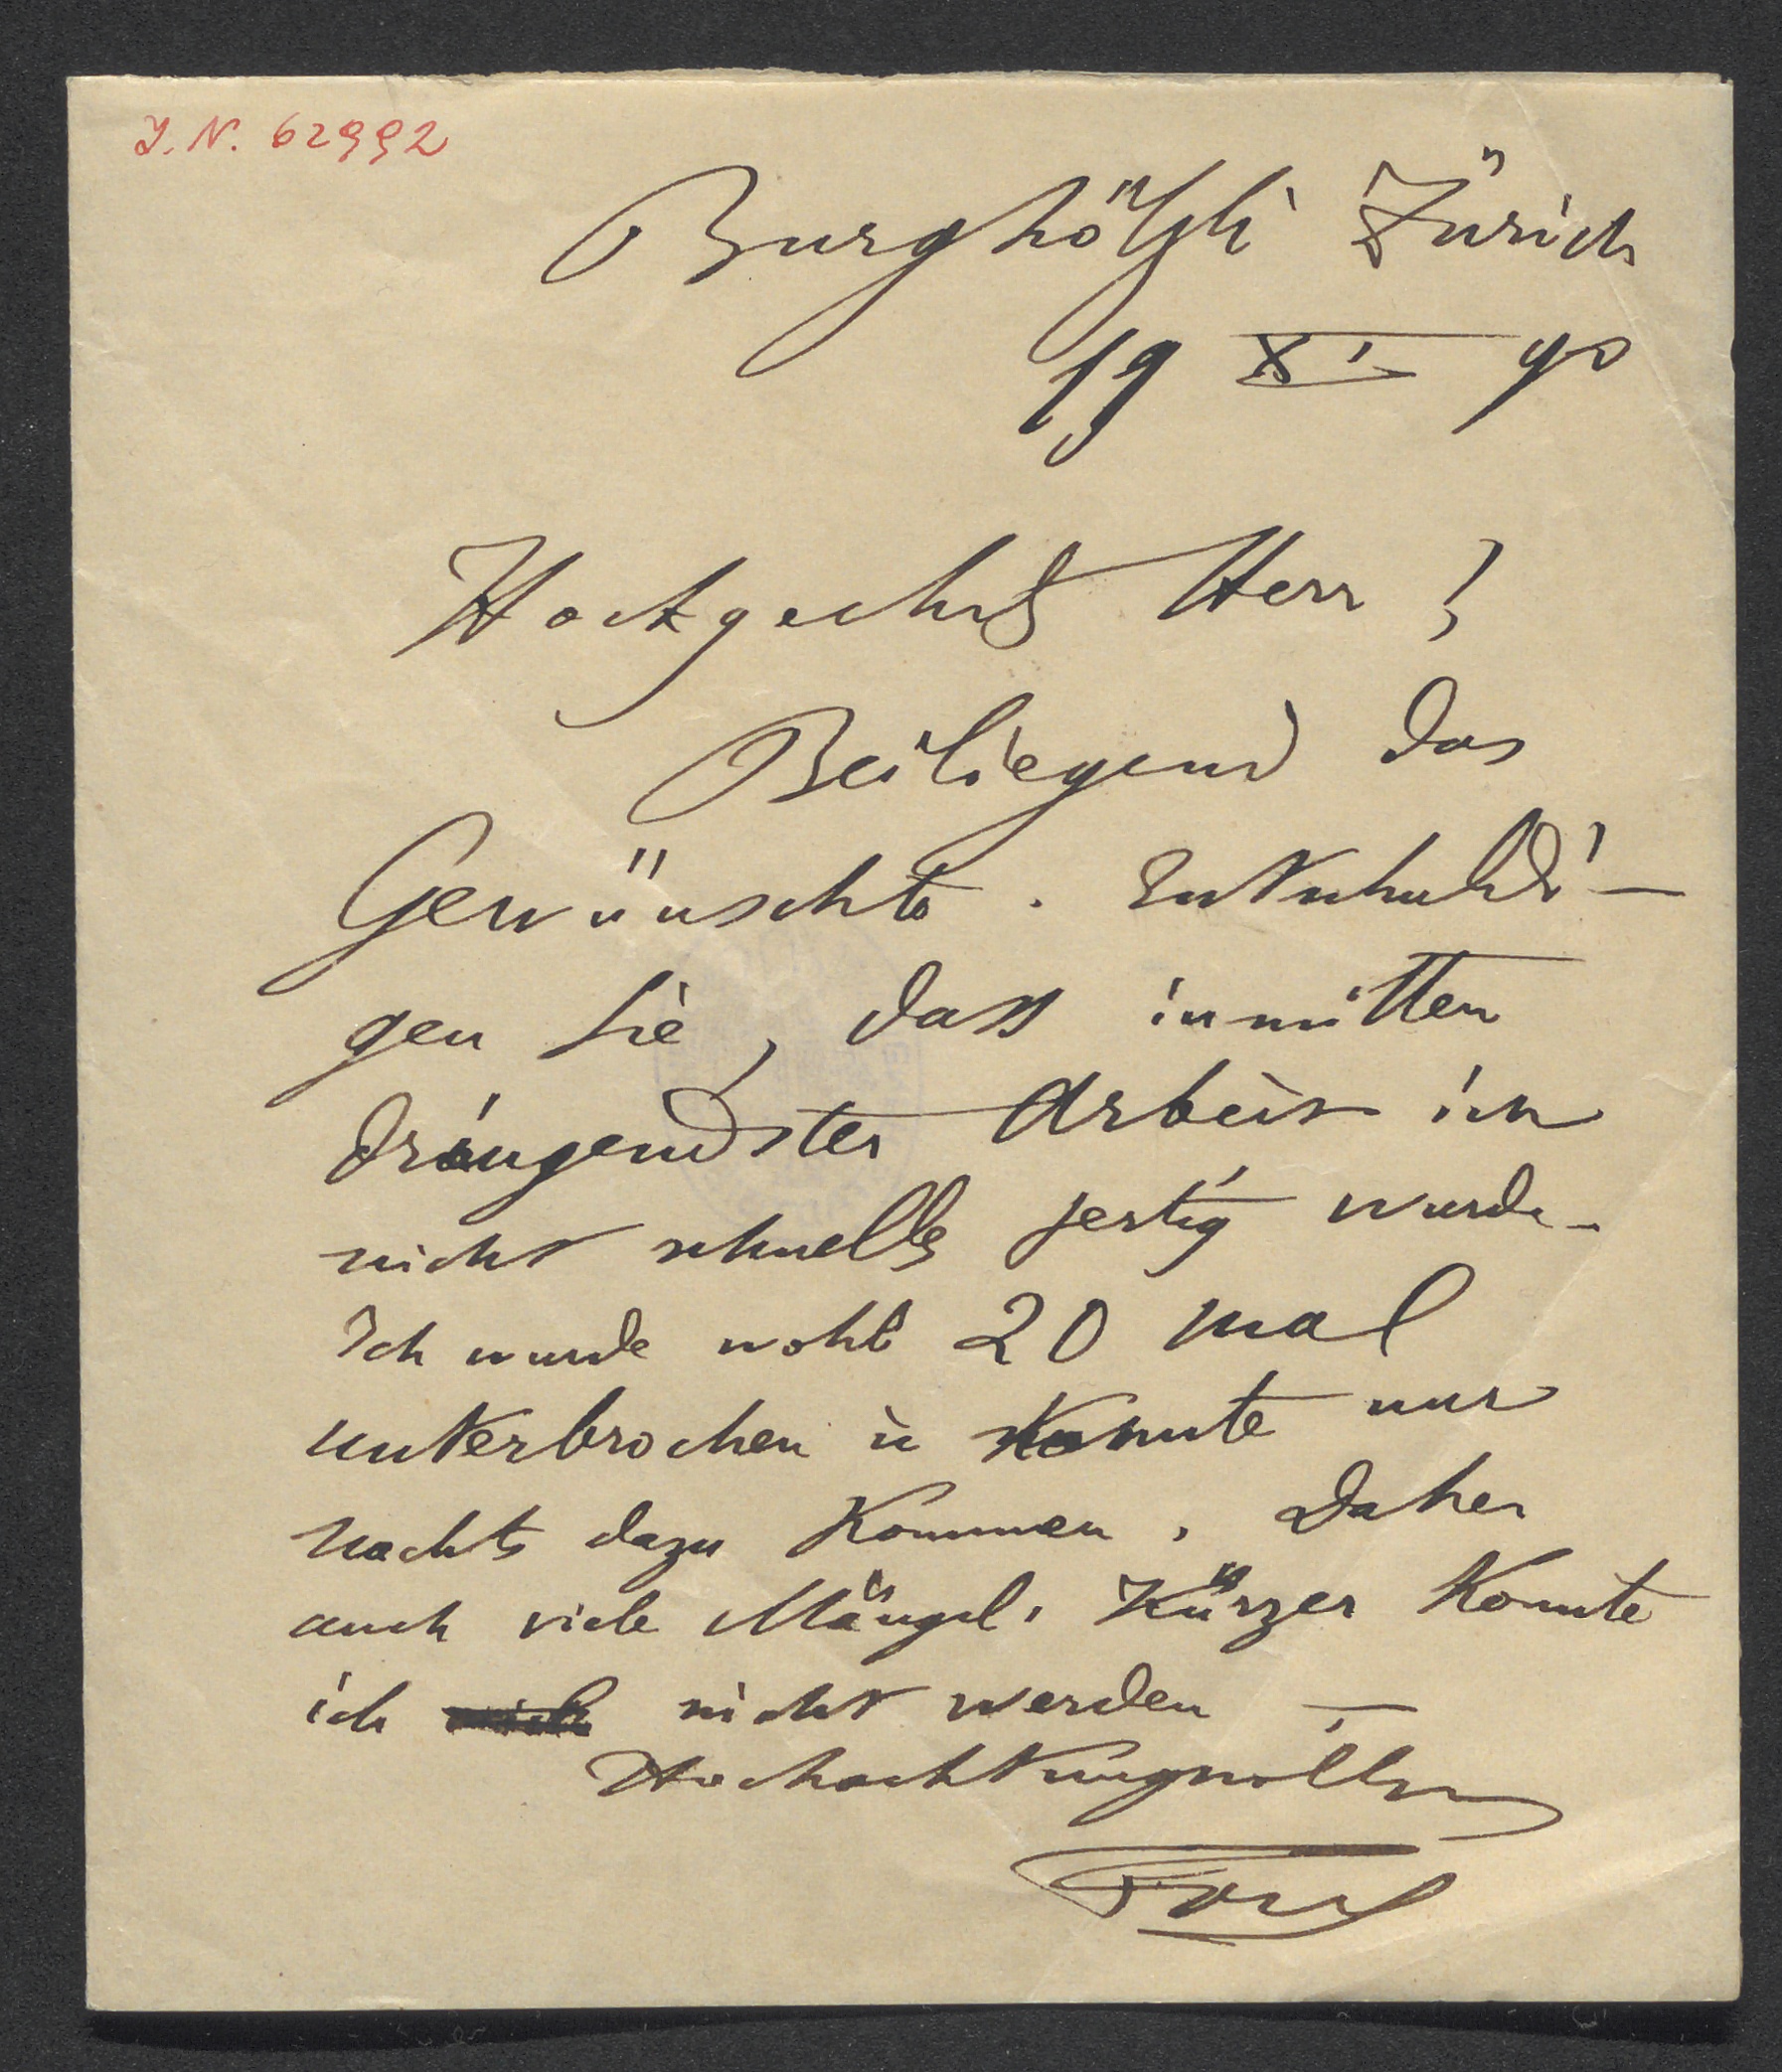 J. N. 62992
Burghölzli Zürich
19 XI 90
Hochgeehrt Herr!
Beiliegend das
Gewünschte. Entschuldi-
gen Sie, dass inmitten
dringendster Arbeit ich
nicht schneller fertig wurde.
Ich wurde wohl 20 mal
unterbrochen u konnte nur
nachts dazu kommen. Daher
auch viele Mängel. Kürzer konnte
ich nicht werden —
Hochachtungsvollst
Forel